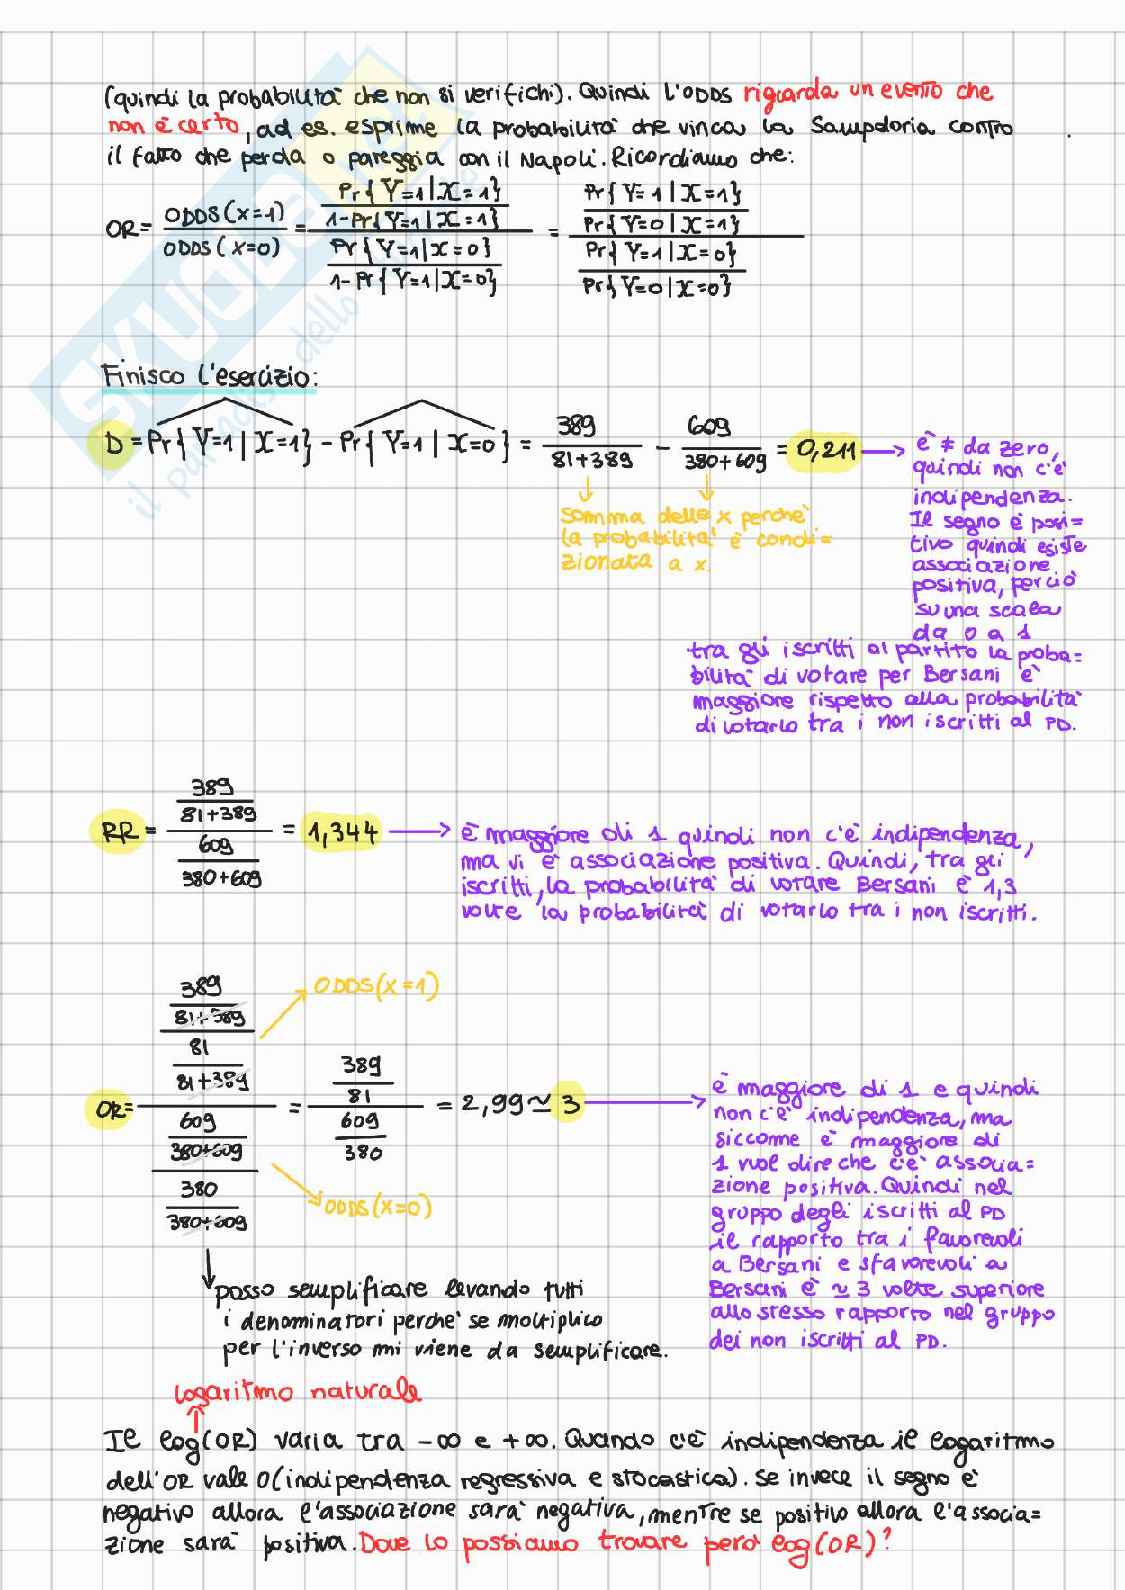 (quindi la probabilità che non si verifichi). Quindi l'ODDS riguarda un evento che
non è certo, ad es. esprime la probabilità che vinca la Sampdoria contro
il fatto che perda o pareggia con il Napoli. Ricordiamo che:
OR = ODDS(x=1) / ODDS(x=0) = (Pr{Y=1|X=1} / 1-Pr{Y=1|X=1}) / (Pr{Y=1|X=0} / 1-Pr{Y=1|X=0}) = (Pr{Y=1|X=1} / Pr{Y=0|X=1}) / (Pr{Y=1|X=0} / Pr{Y=0|X=0})
Finisco l'esercizio:
D = Pr{Y=1|X=1} - Pr{Y=1|X=0} = 389 / 81+389 - 609 / 380+609 = 0,211
è ≠ da zero,
quindi non c'è
indipendenza.
Il segno è posi=
tivo quindi esiste
associazione
positiva, perciò
su una scala
da 0 a 1
tra gli iscritti al partito la proba=
bilità di votare per Bersani è
maggiore rispetto alla probabilità
di votarlo tra i non iscritti al PD.
somma delle x perchè
la probabilità è condi=
zionata a x.
RR = (389 / 81+389) / (609 / 380+609) = 1,344
è maggiore di 1 quindi non c'è indipendenza,
ma vi è associazione positiva. Quindi, tra gli
iscritti, la probabilità di votare Bersani è 1,3
volte la probabilità di votarlo tra i non iscritti.
ODDS(x=1)
OR = ((389 / 81+389) / (81 / 81+389)) / ((609 / 380+609) / (380 / 380+609)) = (389 / 81) / (609 / 380) = 2,99 ≃ 3
ODDS(x=0)
è maggiore di 1 e quindi
non c'è indipendenza, ma
siccome è maggiore di
1 vuol dire che c'è associa=
zione positiva. Quindi nel
gruppo degli iscritti al PD
il rapporto tra i favorevoli
a Bersani e sfavorevoli a
Bersani è ≃ 3 volte superiore
allo stesso rapporto nel gruppo
dei non iscritti al PD.
posso semplificare levando tutti
i denominatori perchè se moltiplico
per l'inverso mi viene da semplificare.
logaritmo naturale
Il log(OR) varia tra -∞ e +∞. Quando c'è indipendenza il logaritmo
dell'OR vale 0 (indipendenza regressiva e stocastica). Se invece il segno è
negativo allora l'associazione sarà negativa, mentre se positivo allora l'associa=
zione sarà positiva. Dove lo possiamo trovare però log(OR)?